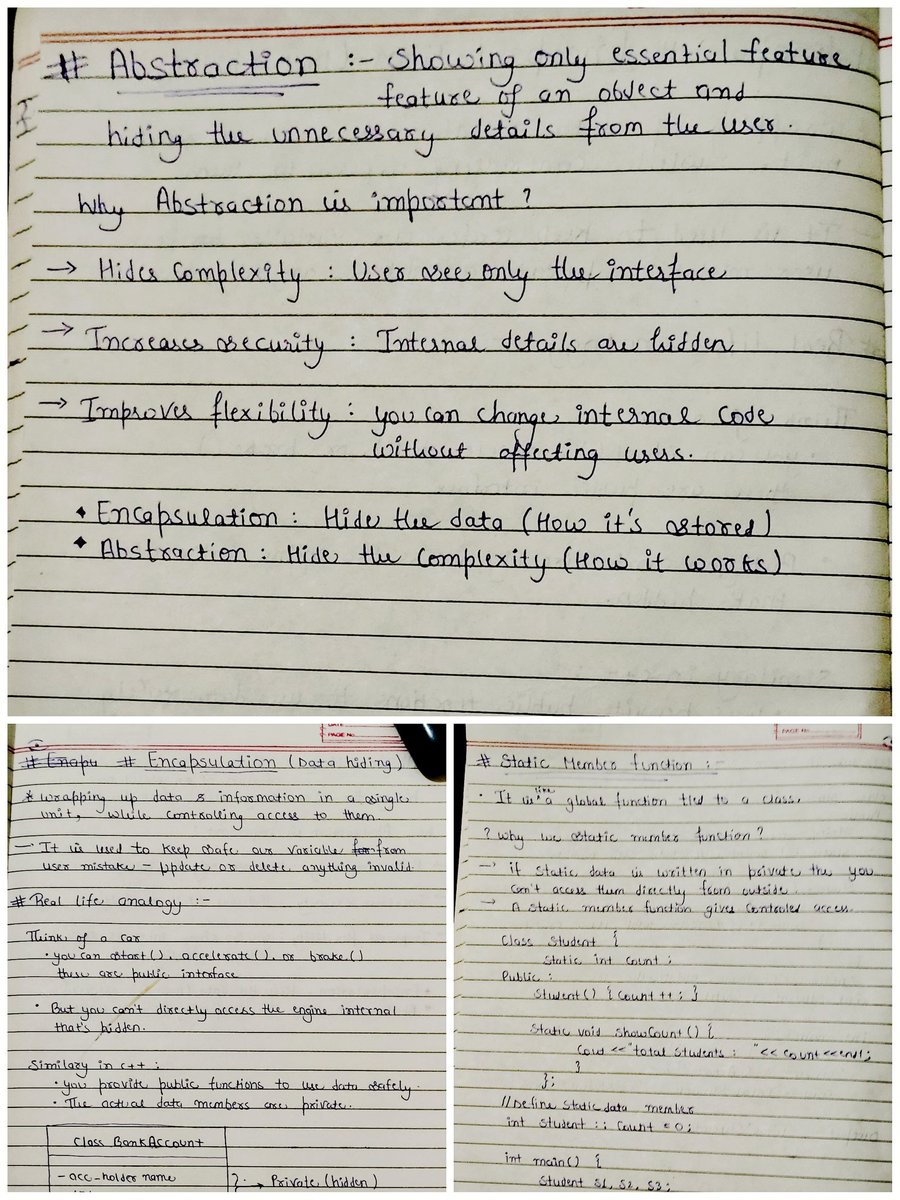 # Abstraction :- Showing only essential feature
feature of an object and
hiding the unnecessary details from the user.
Why Abstraction is important ?
→ Hides Complexity : User see only the interface
→ Increases security : Internal details are hidden
→ Improves flexibility : you can change internal code
without affecting users.
• Encapsulation : Hide the data (How it's stored)
• Abstraction : Hide the complexity (How it works)
PAGE No.
# Enapu # Encapsulation (Data hiding)
* wrapping up data & information in a single
unit, while controlling access to them.
— It is used to keep safe our variable for from
user mistake - update or delete anything invalid.
# Real life analogy :-
Think of a car
• you can start(), accelerate(), or brake()
these are public interface
• But you can't directly access the engine internal
that's hidden.
Similary in c++ :
• you provide public functions to use data safely.
• The actual data members are private.
Class BankAccount
- acc-holder name } → Private (hidden)
PAGE No.
# Static Member function :-
• It is like a global function tied to a class.
? Why we static member function ?
→ if static data is written in private the you
can't access them directly from outside.
→ A static member function gives controled access.
Class Student {
Static int Count ;
Public :
Student() { Count ++ ; }
Static void showCount () {
Cout << "total students : " << count << endl;
}
};
// Define static data member
int Student :: Count = 0;
int main() {
Student S1, S2, S3 ;